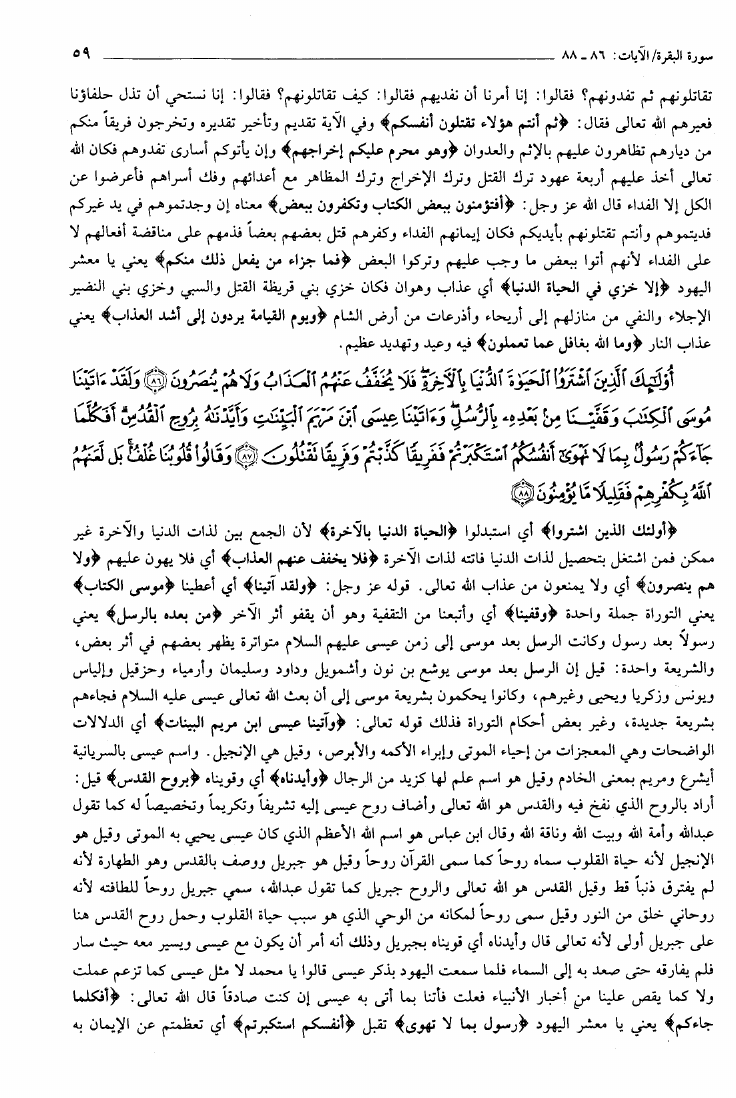 سورة البقرة/الآيات: ٨٦ ـ ٨٨ ٥٩
تقاتلونهم ثم تفدونهم؟ فقالوا: إنا أمرنا أن نفديهم فقالوا: كيف تقاتلونهم؟ فقالوا: إنا نستحي أن تذل حلفاؤنا
فعيرهم الله تعالى فقال: ﴿ثم أنتم هؤلاء تقتلون أنفسكم﴾ وفي الآية تقديم وتأخير تقديره وتخرجون فريقاً منكم
من ديارهم تظاهرون عليهم بالإثم والعدوان ﴿وهو محرم عليكم إخراجهم﴾ وإن يأتوكم أسارى تفدوهم فكان الله
تعالى أخذ عليهم أربعة عهود ترك القتل وترك الإخراج وترك المظاهر مع أعدائهم وفك أسراهم فأعرضوا عن
الكل إلا الفداء قال الله عز وجل: ﴿أفتؤمنون ببعض الكتاب وتكفرون ببعض﴾ معناه إن وجدتموهم في يد غيركم
فديتموهم وأنتم تقتلونهم بأيديكم فكان إيمانهم الفداء وكفرهم قتل بعضهم بعضاً فذمهم على مناقضة أفعالهم لا
على الفداء لأنهم أتوا ببعض ما وجب عليهم وتركوا البعض ﴿فما جزاء من يفعل ذلك منكم﴾ يعني يا معشر
اليهود ﴿إلا خزي في الحياة الدنيا﴾ أي عذاب وهوان فكان خزي بني قريظة القتل والسبي وخزي بني النضير
الإجلاء والنفي من منازلهم إلى أريحاء وأذرعات من أرض الشام ﴿ويوم القيامة يردون إلى أشد العذاب﴾ يعني
عذاب النار ﴿وما الله بغافل عما تعملون﴾ فيه وعيد وتهديد عظيم.
أُوْلَٰٓئِكَ ٱلَّذِينَ ٱشْتَرَوُا۟ ٱلْحَيَوٰةَ ٱلدُّنْيَا بِٱلْـَٔاخِرَةِ ۖ فَلَا يُخَفَّفُ عَنْهُمُ ٱلْعَذَابُ وَلَا هُمْ يُنصَرُونَ ﴿٨٦﴾ وَلَقَدْ ءَاتَيْنَا
مُوسَى ٱلْكِتَٰبَ وَقَفَّيْنَا مِنۢ بَعْدِهِۦ بِٱلرُّسُلِ ۖ وَءَاتَيْنَا عِيسَى ٱبْنَ مَرْيَمَ ٱلْبَيِّنَٰتِ وَأَيَّدْنَٰهُ بِرُوحِ ٱلْقُدُسِ ۗ أَفَكُلَّمَا
جَآءَكُمْ رَسُولٌۢ بِمَا لَا تَهْوَىٰٓ أَنفُسُكُمُ ٱسْتَكْبَرْتُمْ فَفَرِيقًا كَذَّبْتُمْ وَفَرِيقًا تَقْتُلُونَ ﴿٨٧﴾ وَقَالُوا۟ قُلُوبُنَا غُلْفٌۢ ۚ بَل لَّعَنَهُمُ
ٱللَّهُ بِكُفْرِهِمْ فَقَلِيلًا مَّا يُؤْمِنُونَ ﴿٨٨﴾
﴿أولئك الذين اشتروا﴾ أي استبدلوا ﴿الحياة الدنيا بالآخرة﴾ لأن الجمع بين لذات الدنيا والآخرة غير
ممكن فمن اشتغل بتحصيل لذات الدنيا فاتته لذات الآخرة ﴿فلا يخفف عنهم العذاب﴾ أي فلا يهون عليهم ﴿ولا
هم ينصرون﴾ أي ولا يمنعون من عذاب الله تعالى. قوله عز وجل: ﴿ولقد آتينا﴾ أي أعطينا ﴿موسى الكتاب﴾
يعني التوراة جملة واحدة ﴿وقفينا﴾ أي وأتبعنا من التقفية وهو أن يقفو أثر الآخر ﴿من بعده بالرسل﴾ يعني
رسولاً بعد رسول وكانت الرسل بعد موسى إلى زمن عيسى عليهم السلام متواترة يظهر بعضهم في أثر بعض،
والشريعة واحدة: قيل إن الرسل بعد موسى يوشع بن نون وأشمويل وداود وسليمان وأرمياء وحزقيل وإلياس
ويونس وزكريا ويحيى وغيرهم، وكانوا يحكمون بشريعة موسى إلى أن بعث الله تعالى عيسى عليه السلام فجاءهم
بشريعة جديدة، وغير بعض أحكام التوراة فذلك قوله تعالى: ﴿وآتينا عيسى ابن مريم البينات﴾ أي الدلالات
الواضحات وهي المعجزات من إحياء الموتى وإبراء الأكمه والأبرص، وقيل هي الإنجيل. واسم عيسى بالسريانية
أيشرع ومريم بمعنى الخادم وقيل هو اسم علم لها كزيد من الرجال ﴿وأيدناه﴾ أي وقويناه ﴿بروح القدس﴾ قيل:
أراد بالروح الذي نفخ فيه والقدس هو الله تعالى وأضاف روح عيسى إليه تشريفاً وتكريماً وتخصيصاً له كما تقول
عبدالله وأمة الله وبيت الله وناقة الله وقال ابن عباس هو اسم الله الأعظم الذي كان عيسى يحيي به الموتى وقيل هو
الإنجيل لأنه حياة القلوب سماه روحاً كما سمى القرآن روحاً وقيل هو جبريل ووصف بالقدس وهو الطهارة لأنه
لم يفترق ذنباً قط وقيل القدس هو الله تعالى والروح جبريل كما تقول عبدالله، سمي جبريل روحاً للطافته لأنه
روحاني خلق من النور وقيل سمى روحاً لمكانه من الوحي الذي هو سبب حياة القلوب وحمل روح القدس هنا
على جبريل أولى لأنه تعالى قال وأيدناه أي قويناه بجبريل وذلك أنه أمر أن يكون مع عيسى ويسير معه حيث سار
فلم يفارقه حتى صعد به إلى السماء فلما سمعت اليهود بذكر عيسى قالوا يا محمد لا مثل عيسى كما تزعم عملت
ولا كما يقص علينا من أخبار الأنبياء فعلت فأتنا بما أتى به عيسى إن كنت صادقاً قال الله تعالى: ﴿أفكلما
جاءكم﴾ يعني يا معشر اليهود ﴿رسول بما لا تهوى﴾ تقبل ﴿أنفسكم استكبرتم﴾ أي تعظمتم عن الإيمان به